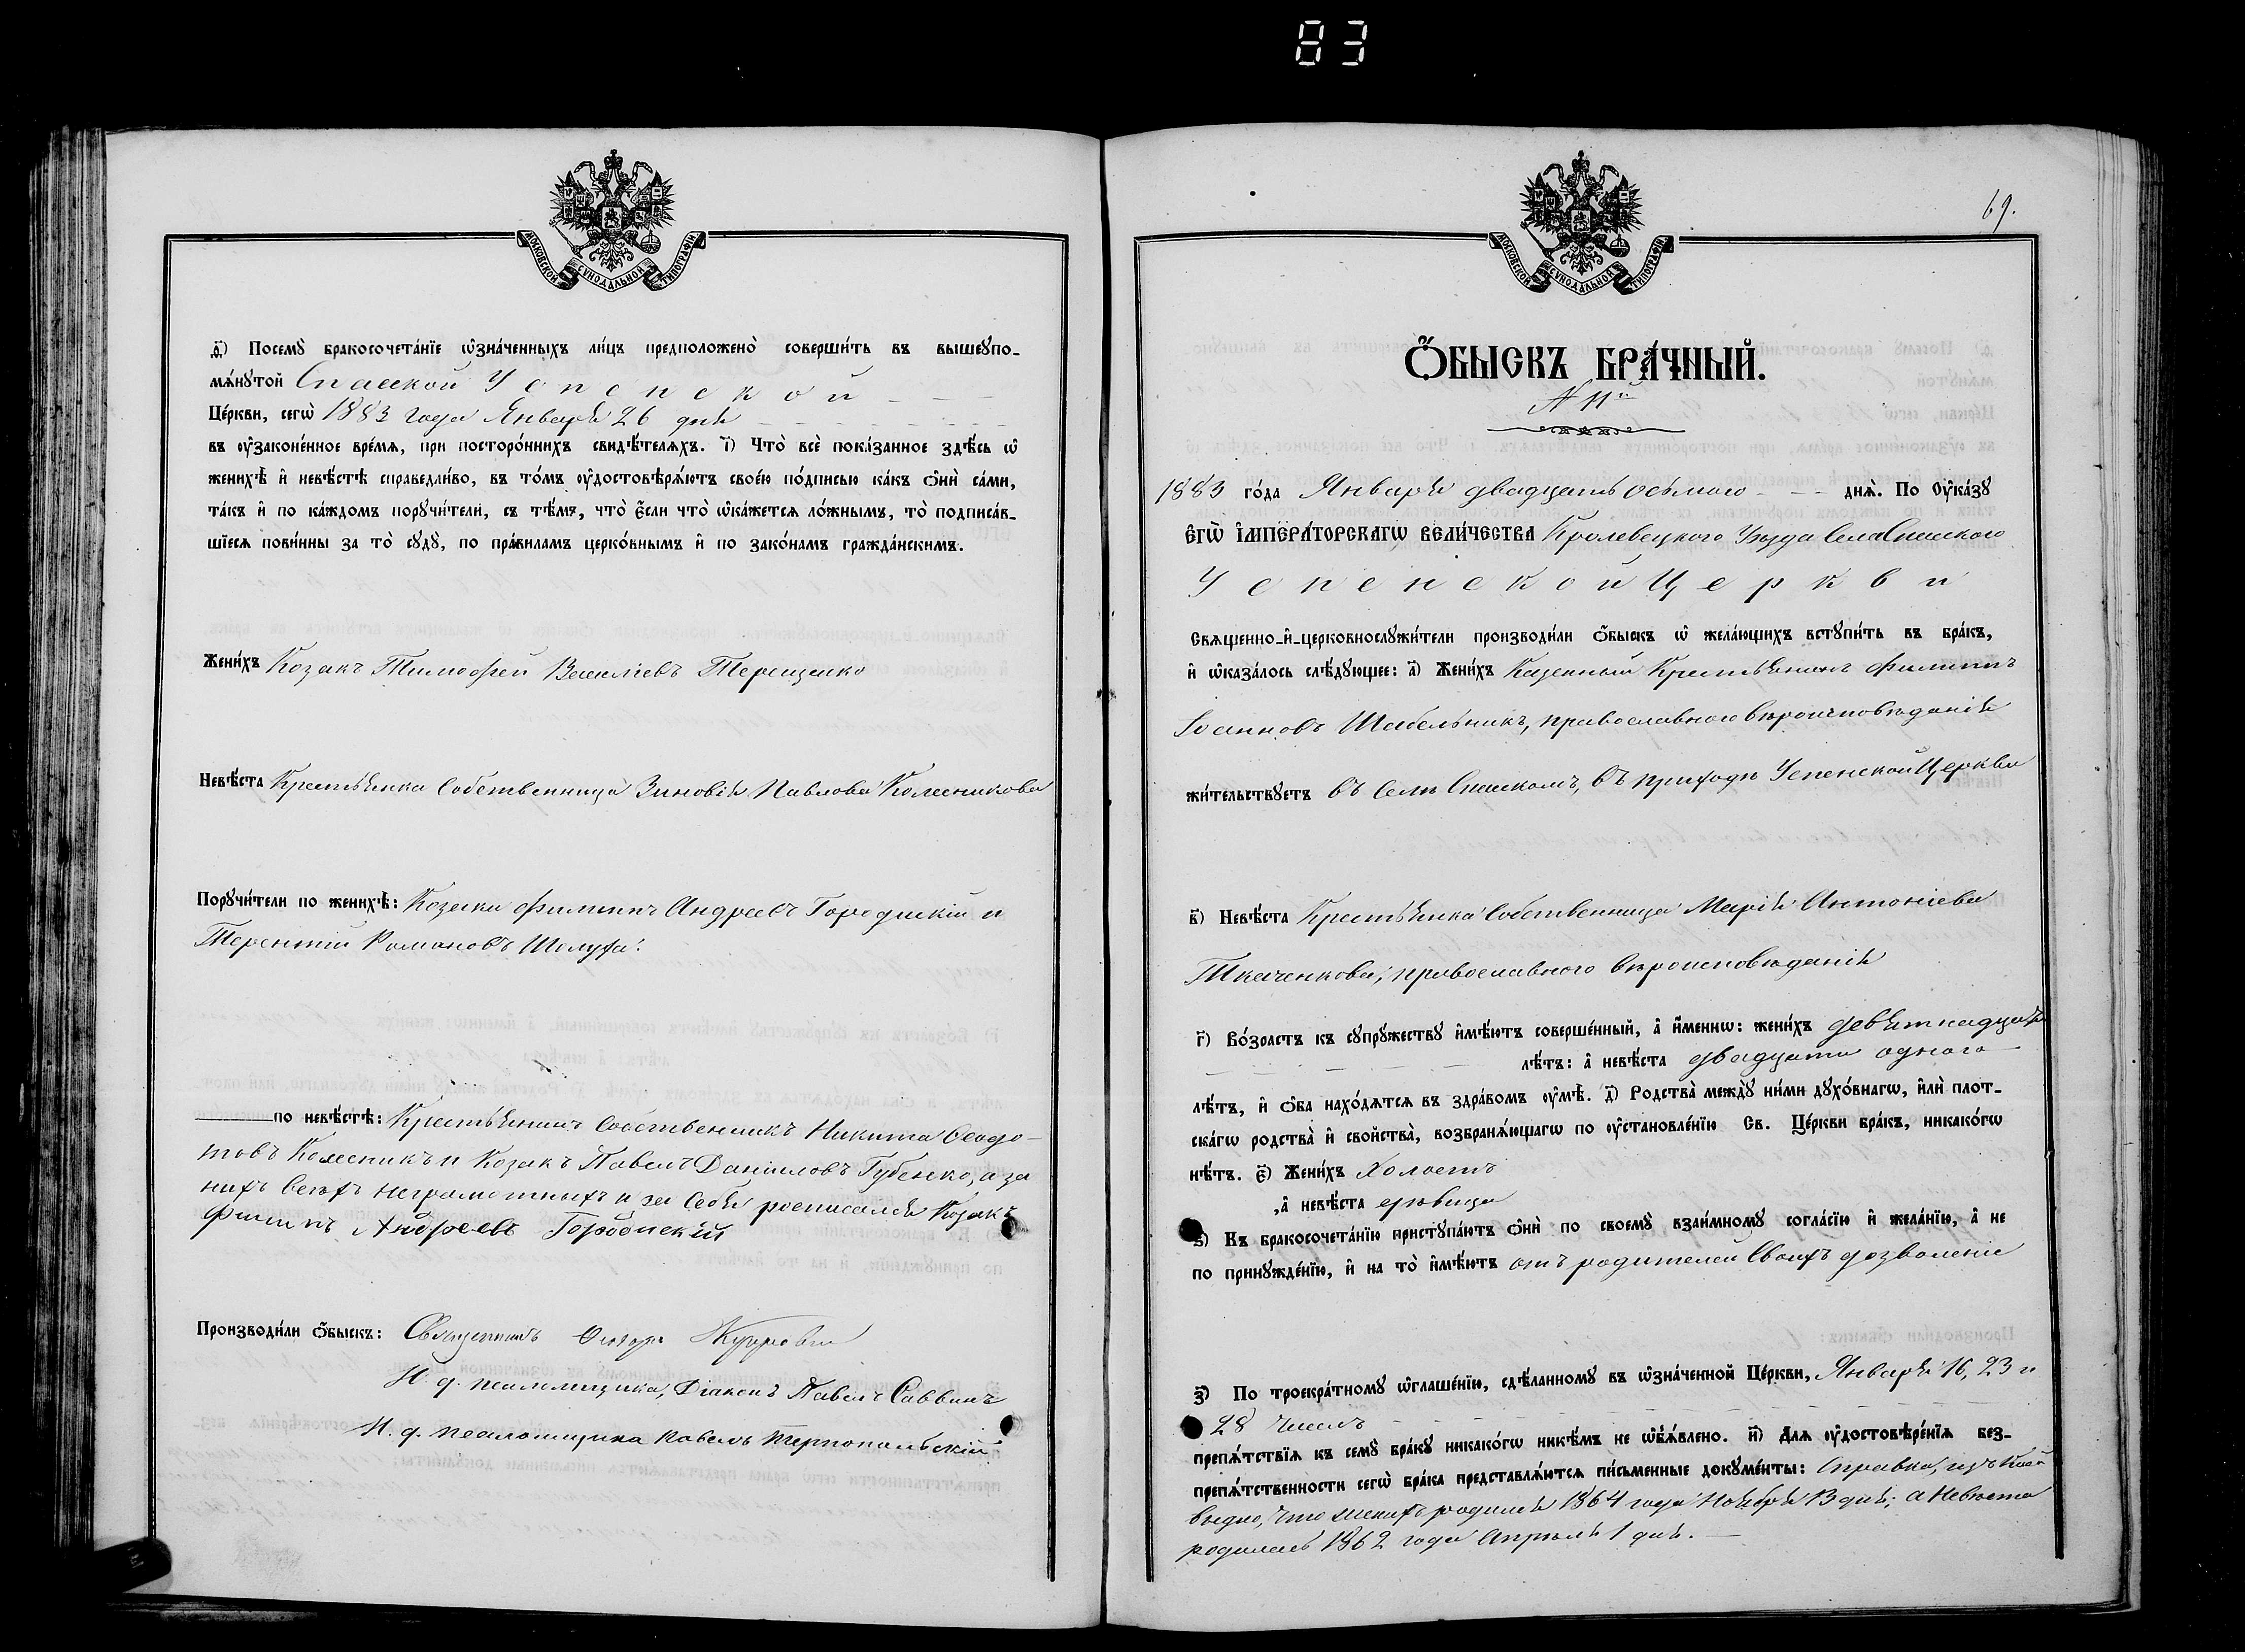 83
МОСКОВСКОЙ СѴНОДАЛЬНОЙ ТИПОГРАФІИ
д҃і) Посемꙋ̀ бракосочета́нїе ѡ҆зна́ченныхъ ли́цъ предположено̀ соверши́ть въ вышеꙋпо-
мѧ́нꙋтой Спасской Успенской
Це́ркви, сегѡ̀ 1883 года Января 26 дня
въ ᲂу҆зако́ненное вре́мѧ, при посторо́ннихъ свидѣ́телѧхъ. і҃) Что̀ всѐ пока́занное здѣ́сь ѡ҆
женихѣ̀ и҆ невѣ́стѣ справедли́во, въ то́мъ ᲂу҆достовѣрѧ́ютъ свое́ю по́дписью ка́къ ѻ҆нѝ са́ми,
та́къ и҆ по ка́ждомъ порꙋчи́тели, съ тѣ́мъ, что̀ є҆́сли что̀ ѡ҆ка́жетсѧ ло́жнымъ, то̀ подписа́в-
шїесѧ пови́нны за то̀ сꙋдꙋ̀, по пра́виламъ церко́внымъ и҆ по зако́намъ гражда́нскимъ.
Жени́хъ Козакъ Тимоѳей Василіевъ Терещенко
Невѣ́ста Крестьянка Собственница Зиновія Павлова Колесникова
Порꙋчи́тели по женихѣ̀: Козаки Филиппъ Андреевъ Городискій и
Терентій Романовъ Шелуха.
по невѣ́стѣ: Крестьянинъ Собственникъ Никита Ѳеодо-
товъ Колесникъ и Козакъ Павелъ Даніиловъ Губенко, а за
нихъ всѣхъ неграмотныхъ и за себя росписался Козакъ
Филипъ Андреевъ Городискій
Производи́ли ѻ҆́быскъ: Священникъ
И. д. псаломщика, Діаконъ Павелъ Саввинъ
И. д. псаломщика Павелъ Тернопольскій
69.
МОСКОВСКОЙ СѴНОДАЛЬНОЙ ТИПОГРАФІИ
Ѻ҆́БЫСКЪ БРА́ЧНЫЙ.
№ 11й
1883 го́да Января двадцать осьмаго днѧ̀. По Оу҆ка́зꙋ
Є҆гѡ̀ И҆мпера́торскагѡ Вели́чества Кролевецкого Уѣзда Села Спасского
Успенской Церкви
Свѧще́нно-и҆-церковнослꙋжи́тели производи́ли ѻ҆́быскъ ѡ҆ жела́ющихъ встꙋпи́ть въ бра́къ,
и҆ ѡ҆каза́лось слѣ́дꙋющее: а҃) Жени́хъ Казенный Крестьянинъ Филиппъ
Іоанновъ Шабельникъ, православного вѣроисповѣданія
жи́тельствꙋетъ въ Селѣ Спаскомъ, въ приходѣ Успенской Церкви
в҃) Невѣ́ста Крестьянка Собственница Марія Антоніева
Ткаченкова, православного вѣроисповѣданія
г҃) Во́зрастъ къ сꙋпрꙋ́жествꙋ и҆мѣ́ютъ соверше́нный, а҆ и҆́меннѡ: жени́хъ девятнадцать
лѣ́тъ: а҆ невѣ́ста двадцати одного
лѣ́тъ, и҆ ѻ҆́ба нахо́дѧтсѧ въ здра́вомъ ᲂу҆мѣ̀. д҃) Родства̀ междꙋ̀ ни́ми дꙋхо́внагѡ, и҆лѝ плот-
ска́гѡ родства̀ и҆ сво́йства, возбранѧ́ющагѡ по ᲂу҆становле́нїю Св. Це́ркви бра́къ, никако́гѡ
нѣ́тъ. є҃) Жени́хъ Холостъ
,а҆ невѣ́ста дѣвица
ѕ҃) Къ бракосочета́нїю пристꙋпа́ютъ ѻ҆нѝ по своемꙋ̀ взаи́мномꙋ согла́сїю и҆ жела́нїю, а҆ не
по принꙋжде́нїю, и҆ на то̀ и҆мѣ́ютъ отъ родителей своихъ дозволеніе
з҃) По троекра́тномꙋ ѡ҆глаше́нїю, сдѣ́ланномꙋ въ ѡ҆зна́ченной Це́ркви, Января 16, 23 и
28 Числъ
препѧ́тствїѧ къ семꙋ̀ бра́кꙋ никако́гѡ никѣ́мъ не ѡ҆б̾ѧ́влено. и҃) Длѧ ᲂу҆достовѣре́нїѧ без-
препѧ́тственности сегѡ̀ бра́ка представлѧ́ютсѧ пи́сьменные докꙋме́нты: Справка, изъ коей
видно, что женихъ родился 1864 года Ноября 13 дня; а Невѣста
родилась 1862 года Апрѣля 1 дня.